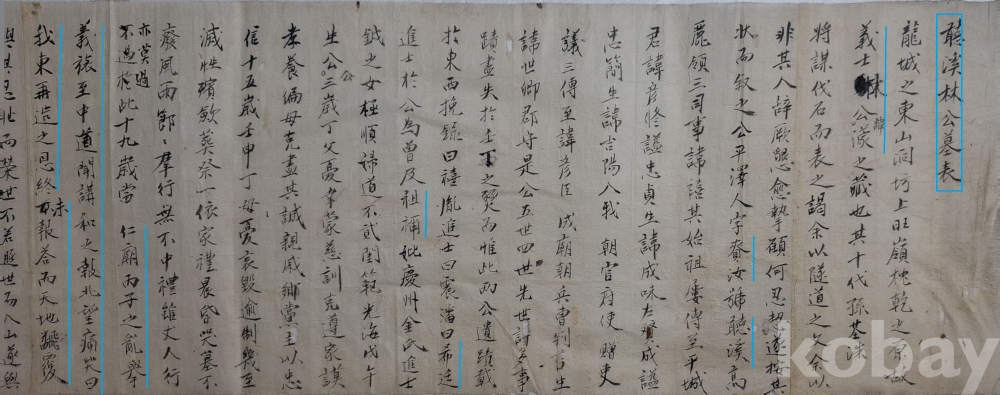 聽溪林公墓表
龍城之東山洞坊上旺嶺枕乾之原故
義士林公諱濛之藏也其十代孫某洙
將謀伐石而表之謁余以隧道之文余以
非其人辭厥懇愈摯顧何忍契遂按其
狀而叙之公平澤人字養汝號聽溪高
麗領三司事諱禧其始祖屢傳至平城
君諱彦修諡忠貞生諱成味左贊成諡
忠簡生諱吉陽入我 朝官府使 贈吏
議三傳至諱彦臣 成廟朝兵曹判書生
諱世卿郡守是公五世四世先世計多事
蹟盡失於壬丁之燹而惟此兩公遺蹟載
於東西挽錄曰禧胤進士曰震潘曰希廷
進士於公爲曾及祖禰妣慶州金氏進士
鉞之女極順禘道不貳閨範光海戊午
生公公三歲丁父憂年蒙慈訓克遵家謨
孝養偏母克盡其誠親戚鄉黨主以忠
信十五歲壬申丁母憂哀毀逾制幾至
滅性殯斂葬祭一依家禮晨昏哭墓不
廢風雨節羣行無不中禮雖丈人行
亦莫過
不過於此十九歲當 仁廟丙子之亂擧
義旅至中道聞講和之報北望痛哭曰
我東再造之恩終未報答而天地飜覆
與其忍恥而榮世不若遯世而入山遂與
kobay